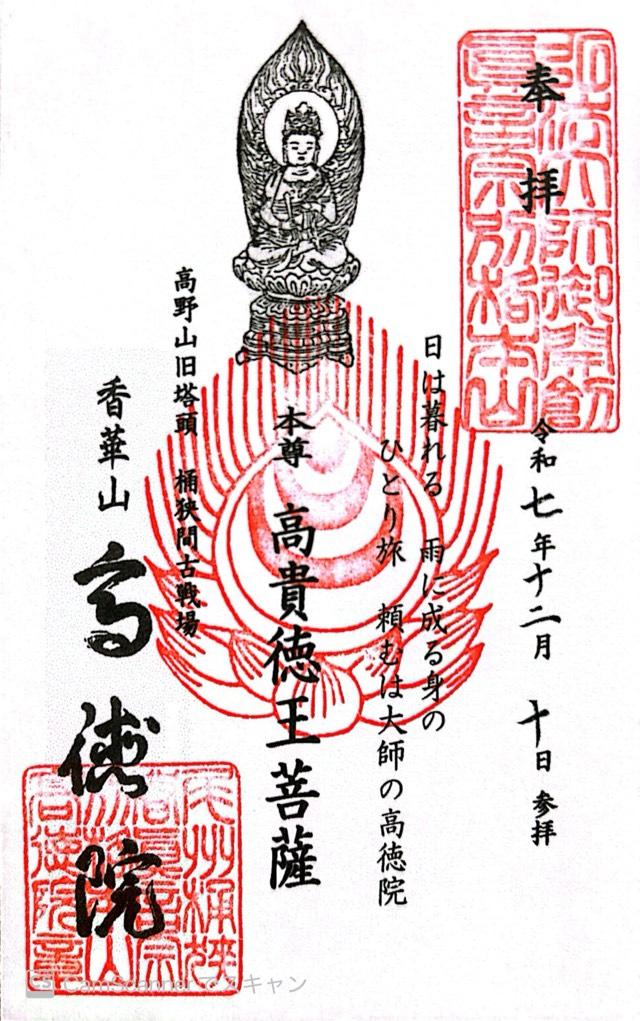 奉拝
弘法大師御開創
真言宗別格本山
令和七年十二月 十日 参拝
日は暮れる 雨に成る身の
ひとり旅 頼むは大師の高徳院
本尊 高貴徳王菩薩
高野山旧塔頭 桶狭間古戦場
香華山 高徳院
高徳院章
CS CamScannerでスキャン